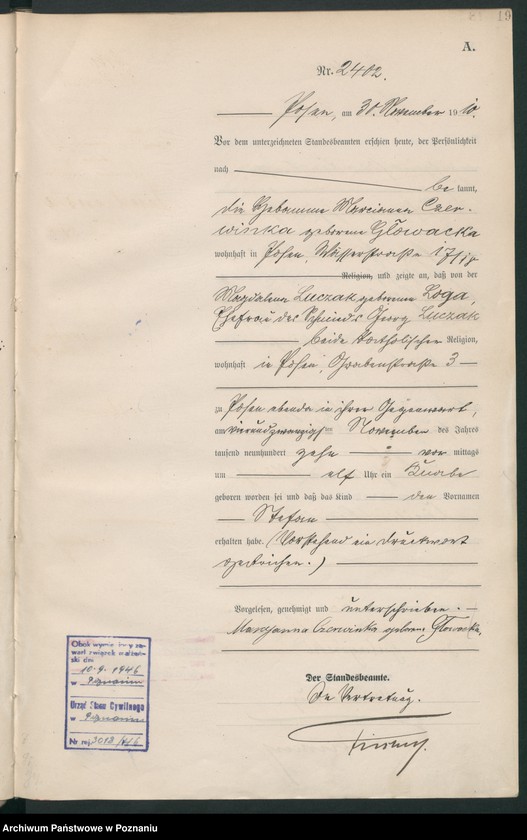 19
A.
Nr. 2402.
Posen, am 30. November 1910.
Vor dem unterzeichneten Standesbeamten erschien heute, der Persönlichkeit
nach
bekannt,
die Hebamme Marcianna Czer-
winka geborene Głowacka
wohnhaft in Posen, Wasserstraße 17/18
Religion, und zeigte an, daß von der
Magdalena Luczak geborenen Loga,
Ehefrau des Schmieds Georg Luczak
beide katholischer Religion,
wohnhaft in Posen, Grabenstraße 3
zu Posen ebenda in ihrer Gegenwart,
am vierundzwanzigsten November des Jahres
tausend neunhundert zehn vor mittags
um elf Uhr ein Knabe
geboren worden sei und daß das Kind den Vornamen
Stefan
erhalten habe. (Vorstehend ein Druckwort
gestrichen.)
Vorgelesen, genehmigt und unterschrieben.
Marjanna Czerwinka geborene Głowacka.
Der Standesbeamte.
In Vertretung.
Obok wymieniony za-
warł związek małżeń-
ski dn.
10.9.1946
w Poznaniu
Urząd Stanu Cywilnego
w Poznaniu
Nr rej. 3012/46
Archiwum Państwowe w Poznaniu